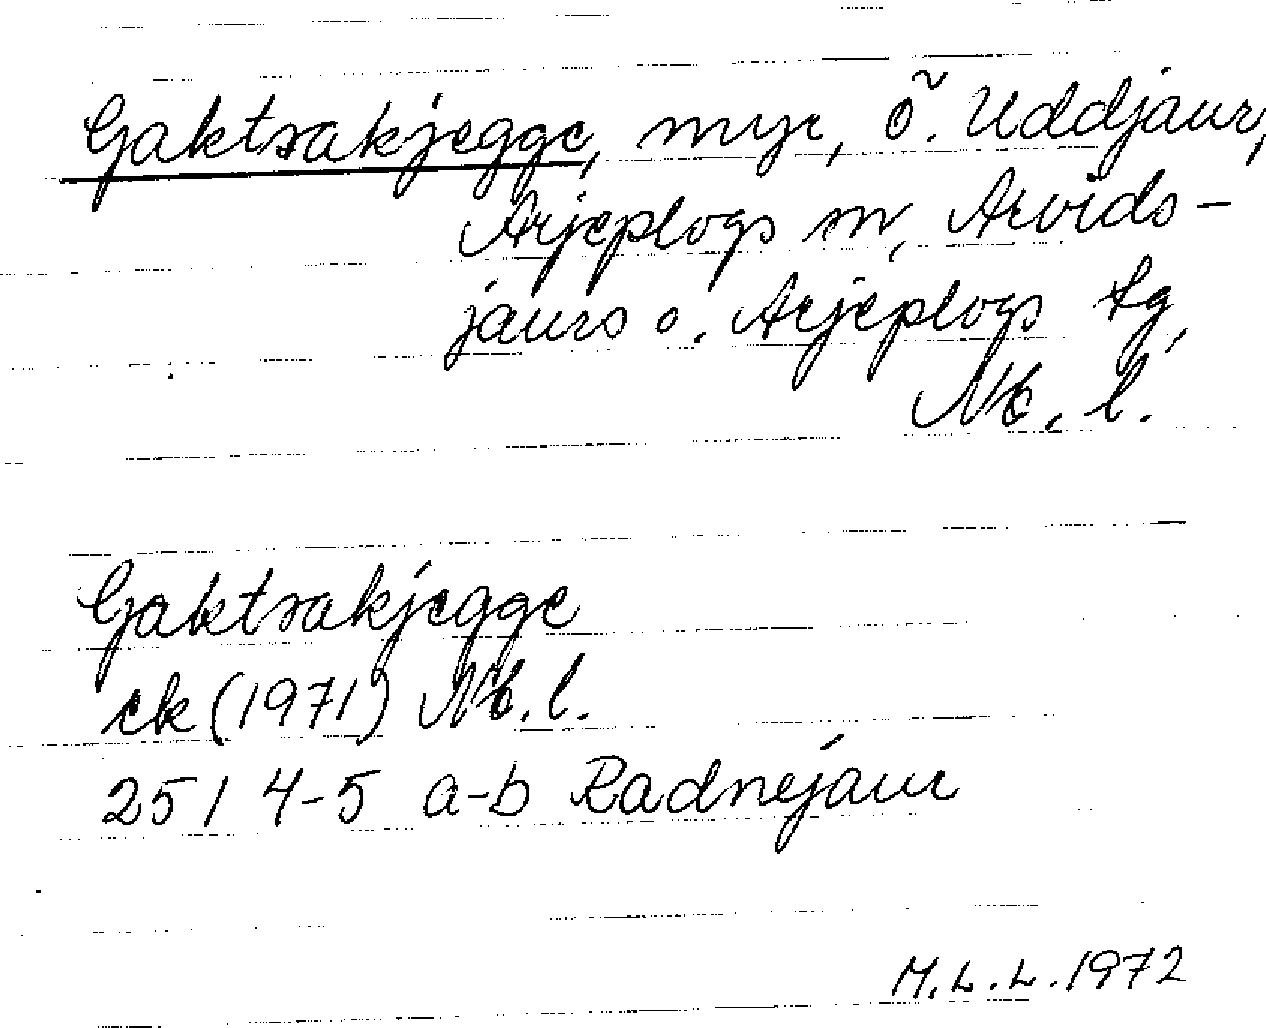 Gaktsakjegge, myr, ö. Uddjaur,
Arjeplogs sn, Arvids-
jaurs o. Arjeplogs tg,
Nb. l.
Gaktsakjegge
ek (1971) Nb. l.
251 4-5 a-b Radnejaur
M.L.L. 1972